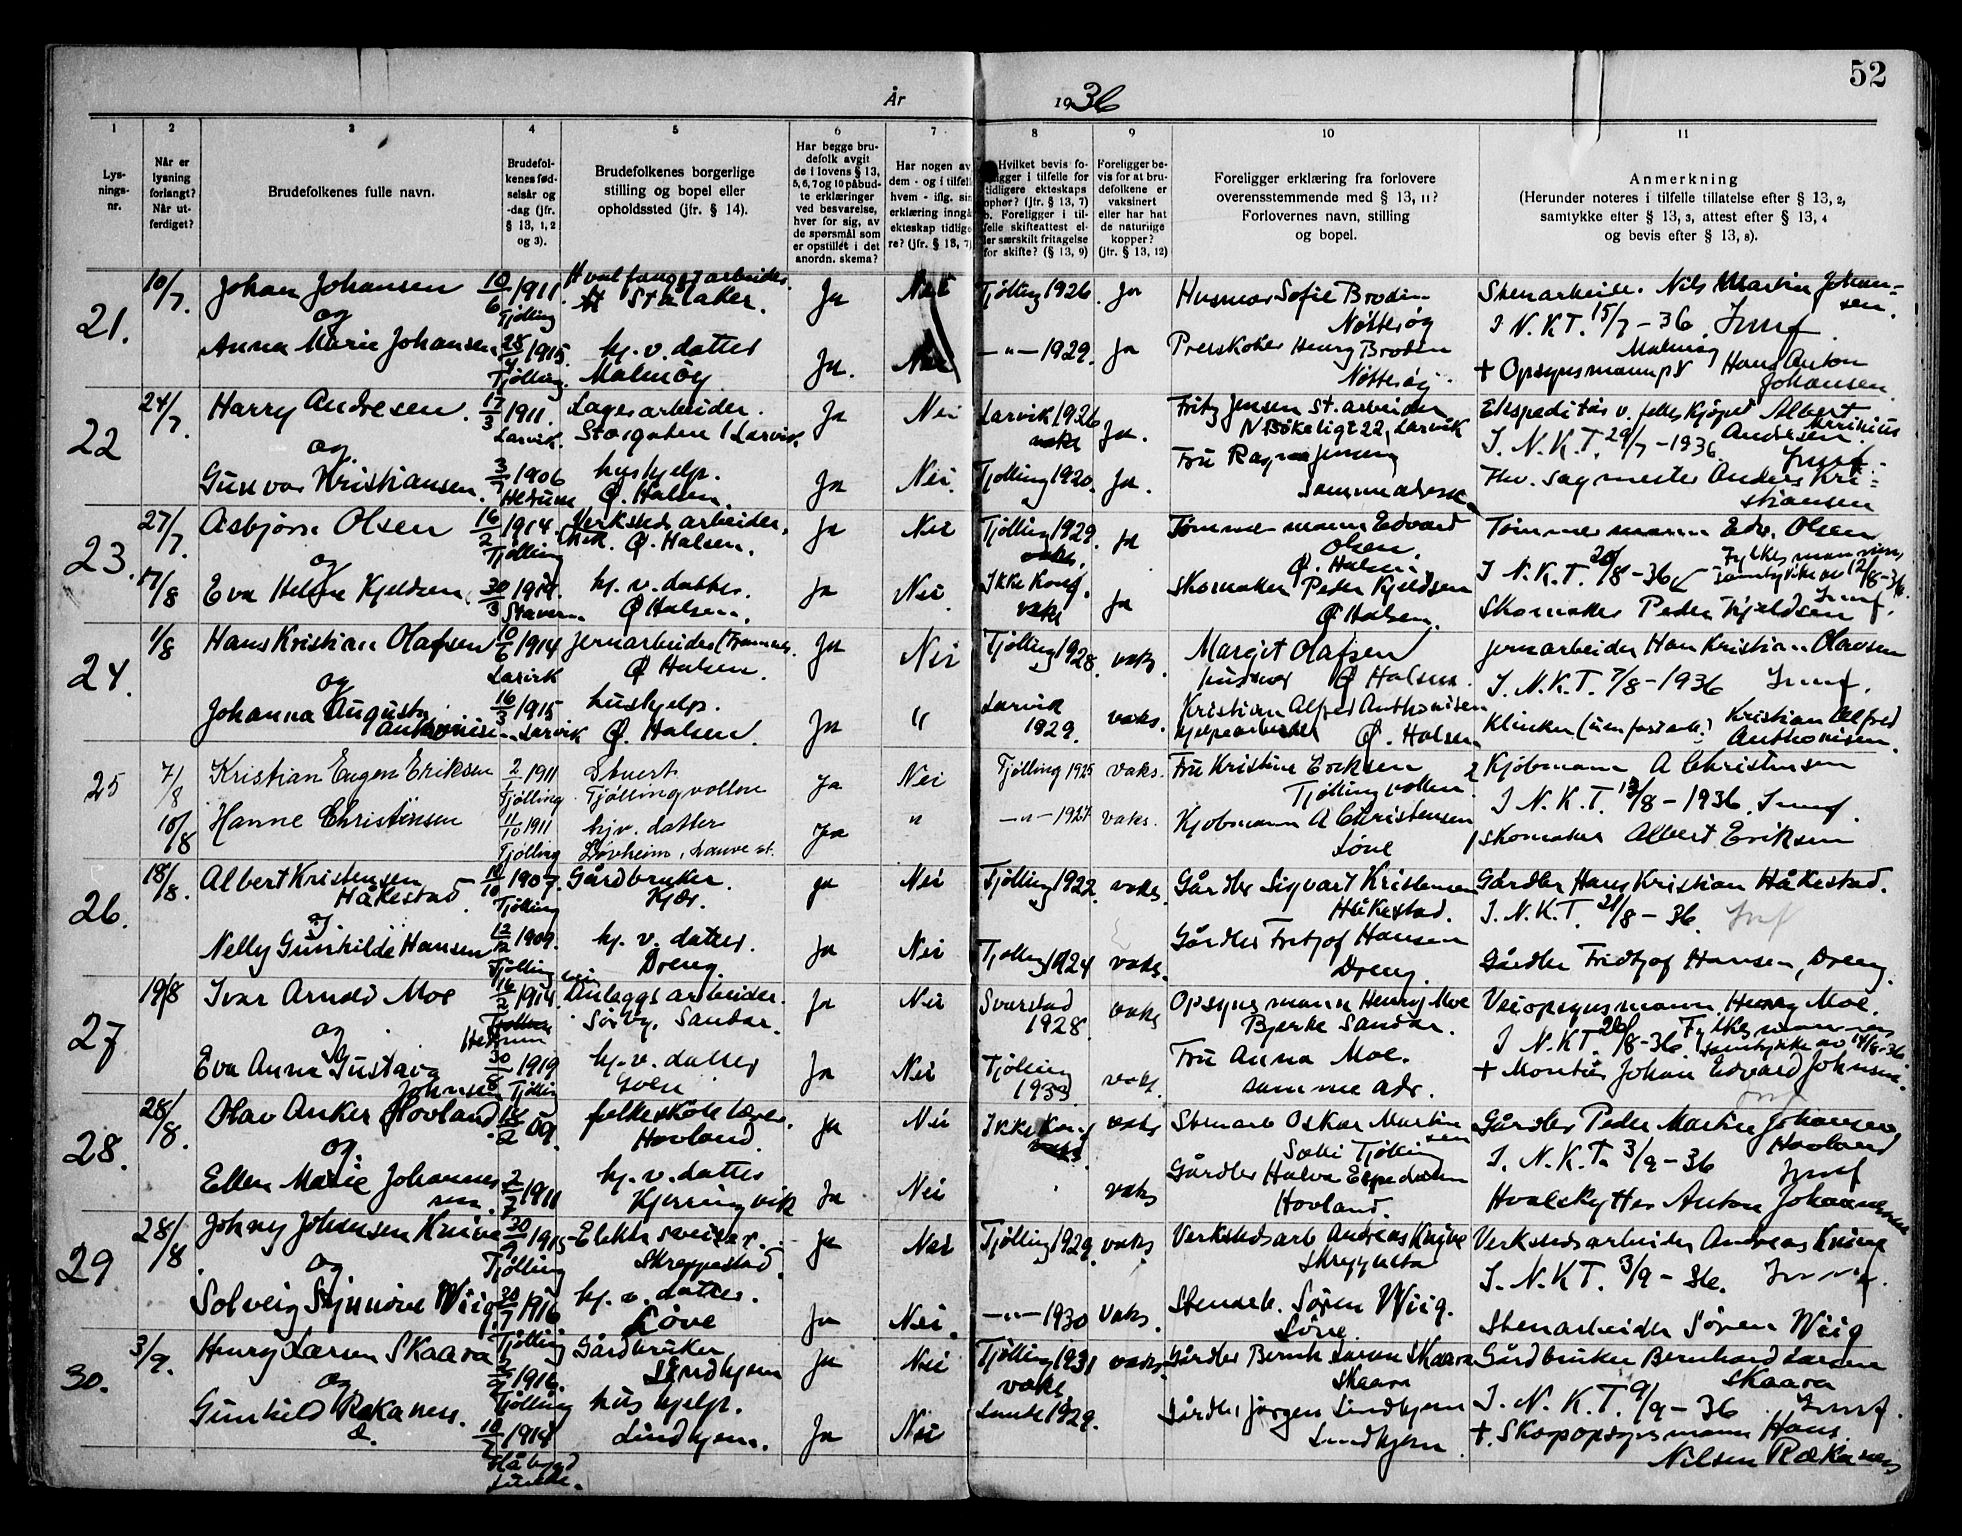 52
År 1936
1 2 3 4 5 6 7 8 9 10 11
Lysningsnr.
Når er lysning forlangt? Når utferdiget?
Brudefolkenes fulle navn.
Brudefolkenes fødselsår og -dag (jfr. § 13, 1, 2 og 3).
Brudefolkenes borgerlige stilling og bopel eller opholdssted (jfr. § 14).
Har begge brudefolk avgit de i lovens § 13, 5, 6, 7 og 10 påbudte erklæringer ved besvarelse, hver for sig, av de spørsmål som er opstillet i det anordn. skema?
Har nogen av dem - og i tilfelle hvem - iflg. sin erklæring inngå ekteskap tidligere? (jfr. § 13, 7)
Hvilket bevis foreligger i tilfelle for tidligere ekteskaps ophør? (jfr. § 13, 7) b. Foreligger i tilfelle skifteattest eller særskilt fritagelse for skifte? (§ 13, 9)
Foreligger bevis for at brudefolkene er vaksinert eller har hat de naturlige kopper? (jfr. § 13, 12)
Foreligger erklæring fra forlovere overensstemmende med § 13, 11? Forlovernes navn, stilling og bopel.
Anmerkning
(Herunder noteres i tilfelle tillatelse efter § 13, 2, samtykke efter § 13, 3, attest efter § 13, 4 og bevis efter § 13, 8).
21. 10/7 Johan Johansen 10/6 1911 Tjølling Hvalfangstarbeider Stålaker. Ja Nei Tjølling 1926. Ja Husmor Sofie Brodin Nøtterøy Stenarbeide. Nils Martin Johansen.
I N.K.T. 15/7-36
og
Anna Marie Johansen 1915 Tjølling. hj. v. datter Malmøy Ja. Nei -"- 1929. Ja Henry Brodin Nøtterøy + Opsynsmann Hans Anton Johansen
22 24/7 Harry Andresen. 17/3 1911. Larvik. Lagerarbeider. Storgaten 1 Larvik Ja Nei Larvik 1926 Ja. Fritz Jensen st.arbeider Bøkeligt 22, Larvik Ekspeditør v. felleskjøpet Albert Andresen
I. N.K.T. 29/7-1936
og
Gunvor Kristiansen. 3/7 1906 Hedrum hushjelp. Ø. Halsen Ja Nei. Tjølling 1920. Ja. Fru Ragna Jensen samme adresse Sagmester Anders Kristiansen
23. 27/7 Asbjørn Olsen 16/2 1914 Tjølling Verkstedsarbeider. Ø. Halsen. Ja Nei Tjølling 1929. Ja Tømmermann Edvard Olsen. Ø. Halsen Tømmermann Edv. Olsen
I N.K.T. 20/8-36 Fylkesmannens samtykke av 12/8-36.
og
17/8 Eva Helene Kjeldsen 30/3 Stavern hj. v. datter. Ø Halsen. Ja Nei Ikke konf. vaks Ja Skomaker Peder Kjeldsen Ø Halsen. Skomaker Peder Kjeldsen
24. 1/8 Hans Kristian Olafsen 10/6 1914 Larvik Jernarbeider Ø Halsen. Ja Nei Tjølling 1928. vaks. Margit Olafsen husmor Ø Halsen. Jernarbeider Hans Kristian Olavsen
I. N.K.T. 7/8-1936
og
Johanna Auguste Anthonisen 16/3 1915 Larvik hushjelp. Ø. Halsen. Ja " Larvik 1929. vaks. Kristian Alfred Anthonisen hjelpearbeider Ø. Halsen Kristian Alfred Anthonisen.
25 7/8 Kristian Eugen Eriksen 2/1 1911 Tjølling Stuert Tjøllingvollen Ja Nei Tjølling 1925 vaks. Fru Kristine Eriksen Tjøllingvollen. 2 Kjøbmann A Christensen
I N.K.T. 13/8-1936.
10/8 Hanne Christensen 11/10 1911 Tjølling hj.v. datter Løvheim, Lauve st. Ja " -"- 1927 vaks. Kjøbmann A Christensen Løve 1 Skomaker Albert Eriksen
26. 18/8 Albert Kristensen Håkestad 1907. Tjølling Gårdbruker. Kjær. Ja Nei Tjølling 1922 vaks. Gårdbr Sigvart Kristensen Håkestad. Gårdbr Hans Kristian Håkestad.
I. N.K.T. 21/8-36.
og
Nelly Gunhilde Hansen 12/12 1909. Tjølling hj. v. datter. Dreng. Ja Nei Tjølling 1924 vaks. Gårdbr Fritjof Hansen Dreng. Gårdbr Fridtjof Hansen, Dreng.
27 19/8 Ivar Arnold Moe 16/12 1914 Hedrum Veianlaggsarbeider. Sørby, Sandar. Ja Nei Svarstad 1928. vaks Opsynsmann Henry Moe Bjerke Sandar. Veiopsynsmann Henry Moe.
I N.K.T. 26/8-36. Fylkesmannens samtykke av 14/8-36
og
Eva Anna Gustava Johnsen 30/8 1919 Tjølling hj. v. datter Ja Nei Tjølling 1933. vaks. Fru Anna Moe. samme adr. + Montør Johan Edvard Johnsen.
28. 28/8. Olav Anker Hovland 09. folkeskolelærer. Hovland. Ja Nei Ikke konf vaks Stenarb Oskar Martinsen Tjølling Gårdbr Peder Martin Johansen Hovland
I. N.K.T. 3/9-36
og.
Ellen Marie Johannessen. 2/7 1911 hj. v. datter Kjerringvik Ja Nei vaks Gårdbr Halvor Espedalen Hovland. Hvalskytter Anton Johannessen
29 28/8 Johny Johansen Knive 30/9 1915 Tjølling Elektr. sveiser. Skreppestad. Ja Nei Tjølling 1929. vaks. Verkstedsarb Andreas Knive Verkstedsarbeider Andreas Knive
I. N.K.T. 3/9-36.
og
Solveig Synnøve Wiig 30/7 1916 Tjølling hj. v. datter. Løve Ja Nei. -"- 1930 vaks. Stenarb. Søren Wiig. Løve. Stenarbeider Søren Wiig
30. 3/9. Henry Larsen Skaara 1916. Tjølling Gårdbruker Lindhjem Ja Nei Tjølling 1931 vaks. Gårdbr Bernh Larsen Skaara Skaara Gårdbruker Bernhard Larsen Skaara
I. N.K.T. 9/9-36
og
Gunhild Rækanes. hushjelp. Lindhjem. Ja Nei 1929. Gårdbr Jørgen Lindhjem Lindhjem + Skogopsynsmann Hans Nilsen Rækanes